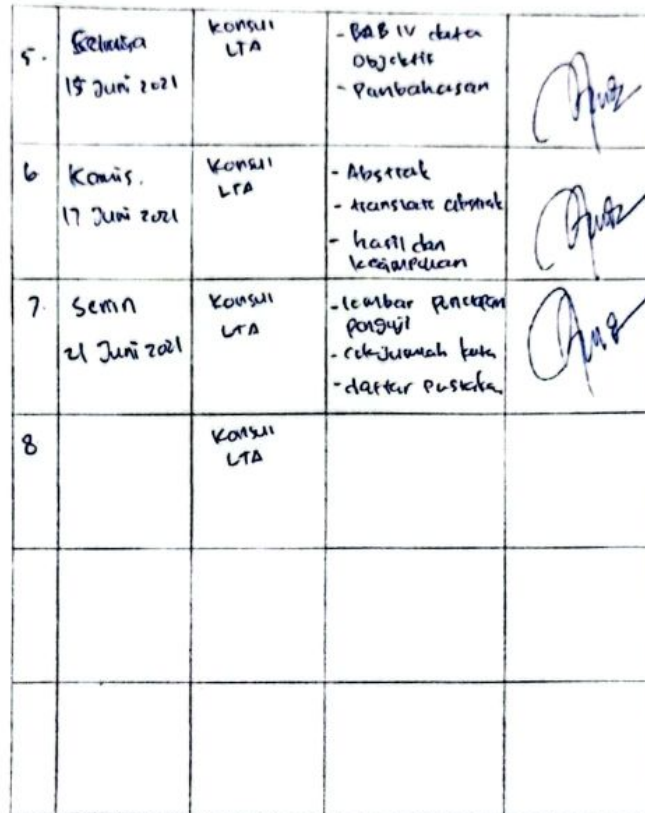 5.
Selasa
15 Juni 2021
Konsul
LTA
- BAB IV data
Objektif
- Pembahasan
6
Kamis.
17 Juni 2021
Konsul
LTA
- Abstrak
- translate abstrak
- hasil dan
kesimpulan
7.
Senin
21 Juni 2021
Konsul
LTA
- lembar penetapan
penguji
- cek jumlah kata
- daftar pustaka
8
Konsul
LTA